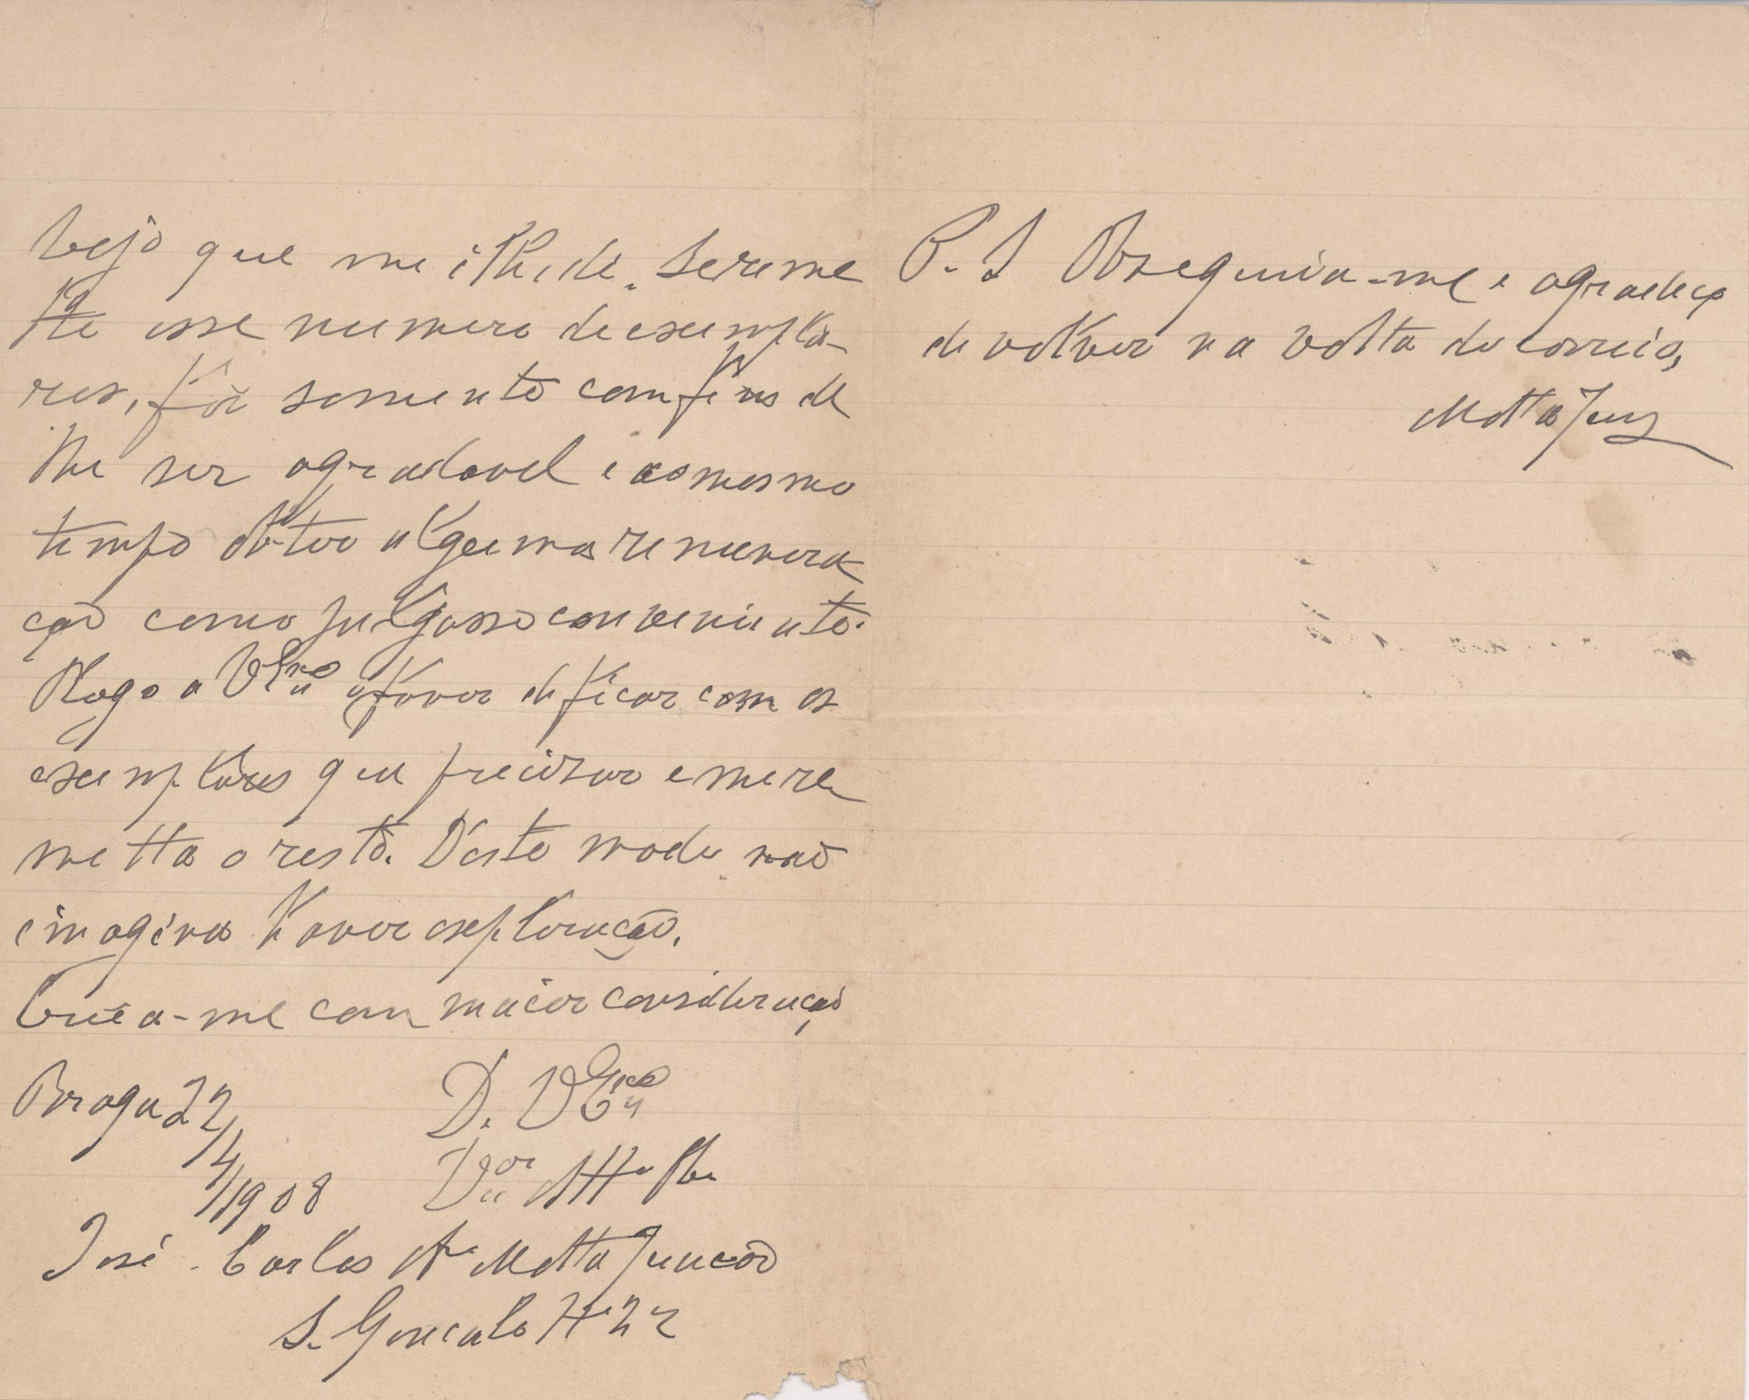 Vejo que me illude. Se reme
tti esse numero de exempla-
res, fôi somente com fins de
lhe ser agradavel e ao mesmo
tempo obter alguma remunera
ção como julgasse conveniente.
Rogo a VExcia o favor de ficar com os
exemplares que precisar e me re
metta o resto. D'este modo não
imagina haver exploração.
Creia-me com maior consideração
Braga 22/4/1908
D. VExcia
Dor Atto
José Carlos da Motta Junior
S. Gonçalo Nº 22
P. S Obsequeia-me e agradeço
devolver na volta do correio,
Motta Junr